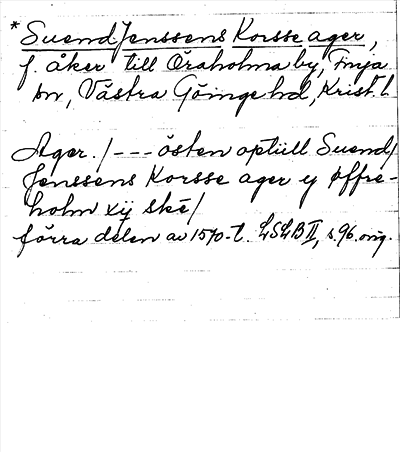 *Suend Jenssens Korsse ager,
f. åker till Öraholma by, Finja
sn, Västra Göinge hd, Krist. l.
Ager. /--- östen optill Suend/
Jenssens Korsse ager y Øffre-
holm xij ske/
förra delen av 1570-t. LSLB II, s. 96. orig.